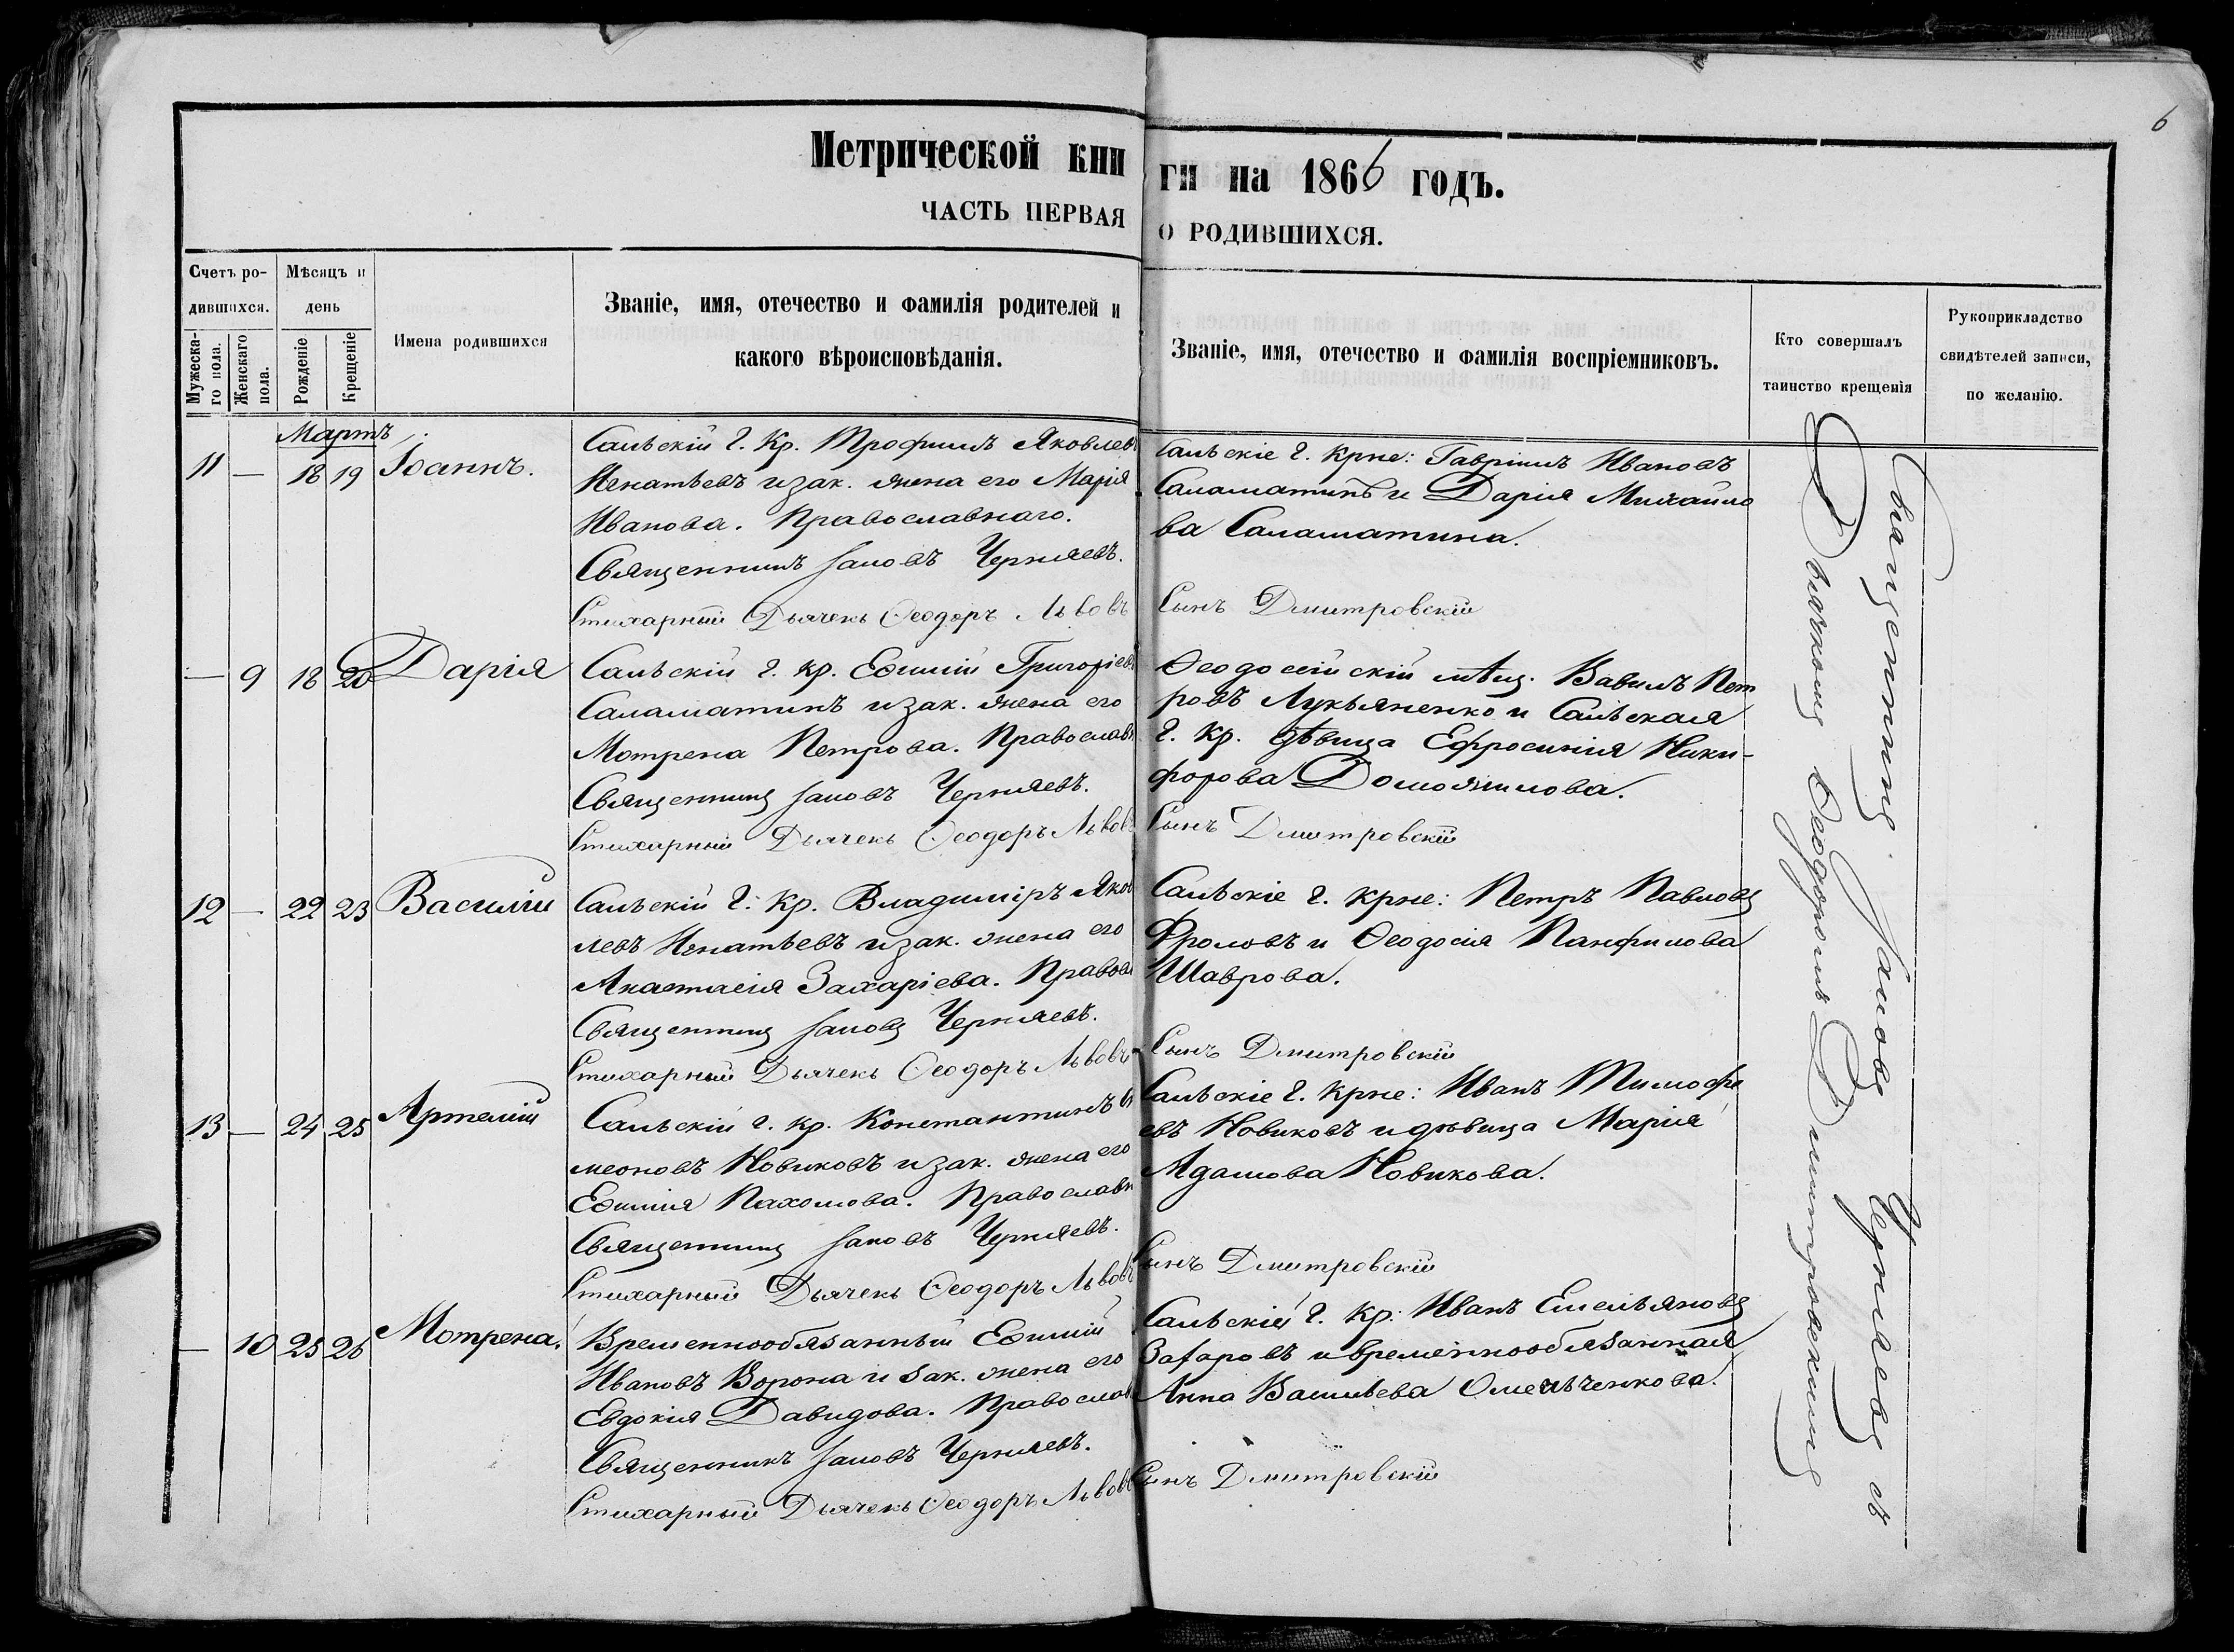 6
Метрической кни ги на 1866 годъ.
ЧАСТЬ ПЕРВАЯ О РОДИВШИХСЯ.
Счетъ ро-
дившихся.
Мужеска-
го пола.
Женскаго
пола.
Мѣсяцъ и
день
Рожденіе
Крещеніе
Имена родившихся
Званіе, имя, отечество и фамилія родителей и
какого вѣроисповѣданія.
Званіе, имя, отечество и фамилія воспріемниковъ.
Кто совершалъ
таинство крещенія
Рукоприкладство
свидѣтелей записи,
по желанію.
Мартъ
11 — 18 19 Іоаннъ.
Сальскій г. Кр. Трофимъ Яковлевъ
Игнатьевъ и зак. жена его Марія
Иванова. Православнаго.
Священникъ Іаковъ Черняевъ.
Стихарный Дьячекъ Ѳеодоръ Львовъ
Сальскіе г. Крне: Гавріилъ Ивановъ
Саламатинъ и Дарія Михайло
ва Саламатина.
Сынъ Дмитровскій
— 9 18 20 Дарія
Сальскій г. кр. Евѳимій Григоріевъ
Саламатинъ и зак. жена его
Мотрена Петрова. Православн
Священникъ Іаковъ Черняевъ.
Стихарный Дьячекъ Ѳеодоръ Львовъ
Ѳеодосійскій мѣщ. Вавилъ Пет
ровъ Лукьяненко и Сальская
г. Кр. дѣвица Ефросинія Ники-
форова Доможилова.
Сынъ Дмитровскій
12 — 22 23 Василій
Сальскій г. Кр. Владиміръ Яков
левъ Игнатьевъ и зак. жена его
Анастасія Захаріева. Правосл
Священникъ Іаковъ Черняевъ.
Стихарный Дьячекъ Ѳеодоръ Львовъ
Сальскіе г. Крне: Петръ Павловъ
Фроловъ и Ѳеодосія Панфилова
Шаврова.
Сынъ Дмитровскій
13 — 24 25 Артемій
Сальскій г. кр. Константинъ Си
меоновъ Новиковъ и зак. жена его
Евѳимія Пахомова. Православн
Священникъ Іаковъ Черняевъ.
Стихарный Дьячекъ Ѳеодоръ Львовъ
Сальскіе г. Крне: Иванъ Тимофе
евъ Новиковъ и дѣвица Марія
Адамова Новикова.
Сынъ Дмитровскій
— 10 25 26 Мотрена.
Временнообязанный Евѳимій
Ивановъ Ворона и зак. жена его
Евдокія Давидова. Православ
Священникъ Іаковъ Черняевъ.
Стихарный Дьячекъ Ѳеодоръ Львовъ
Сальскій г. Кр: Иванъ Емельяновъ
Захаровъ и временнообязанная
Анна Васильева Омельченкова.
Сынъ Дмитровскій
Священникъ Іаковъ Черняевъ съ
Дьячкомъ Ѳеодоромъ Дмитровскимъ